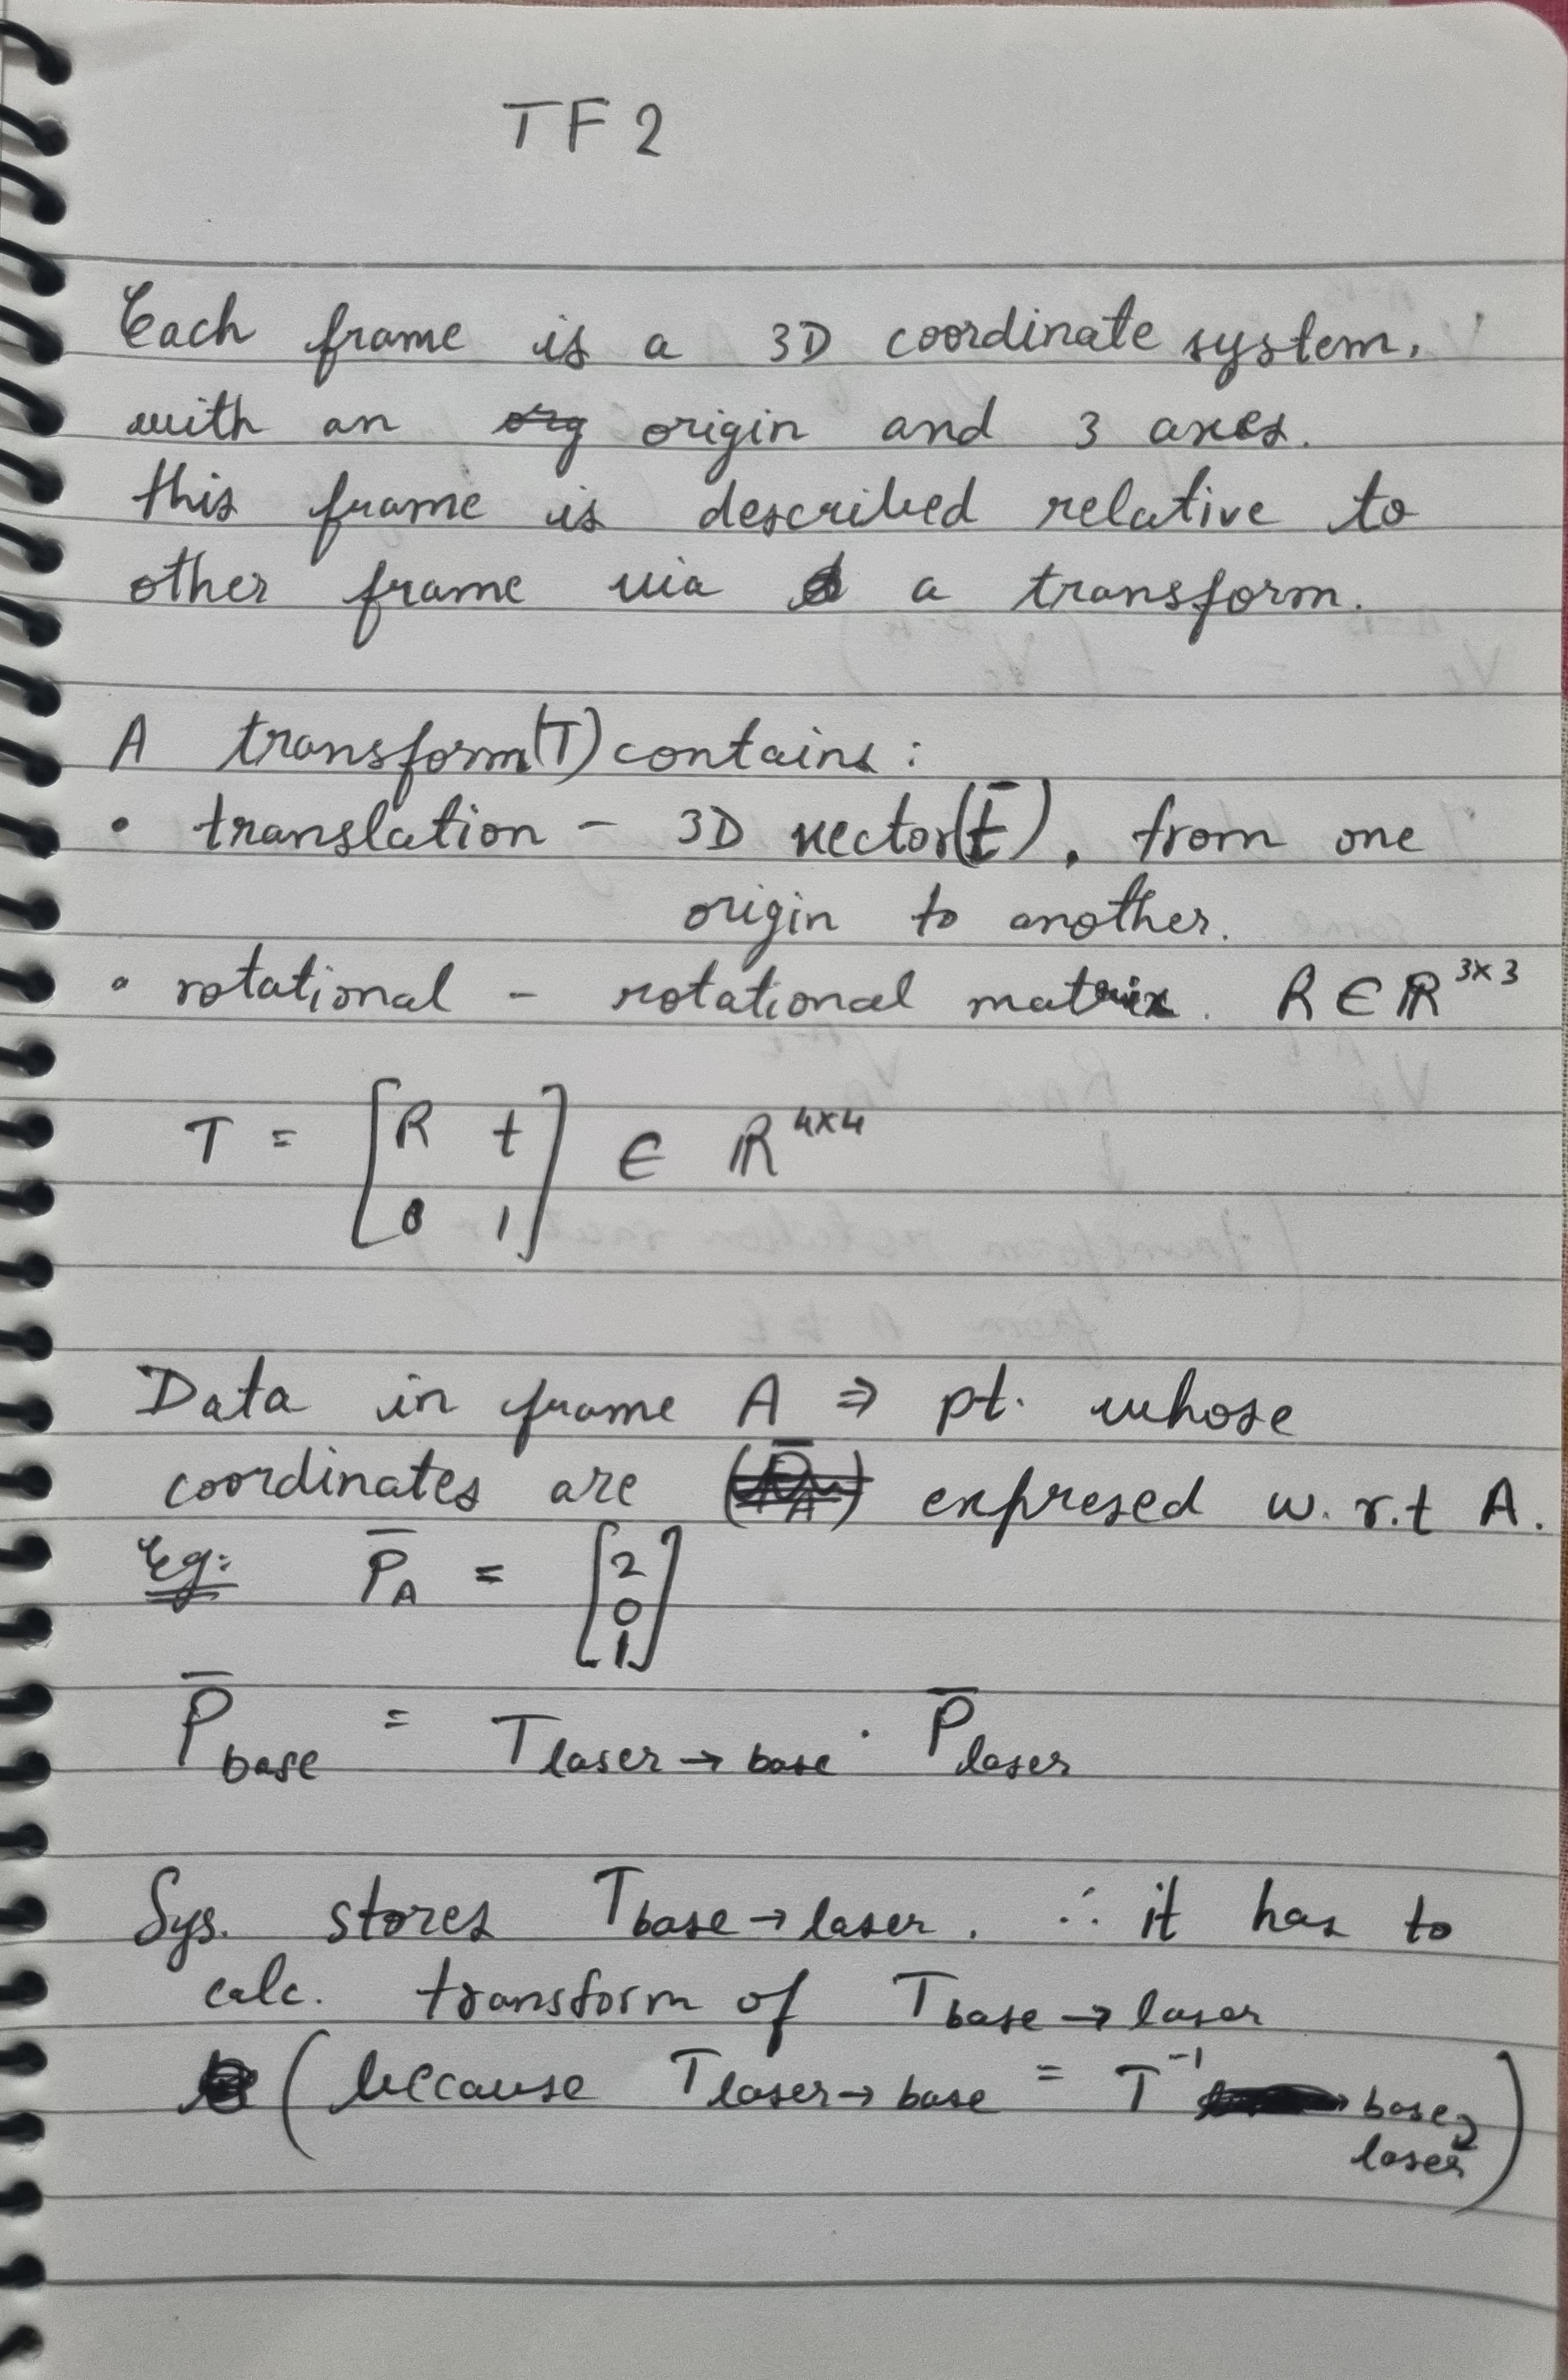 TF2
Each frame is a 3D coordinate system.
with an org origin and 3 axes.
this frame is described relative to
other frame via a transform.
A transform(T) contains:
• translation - 3D vector(t̄), from one
origin to another.
• rotational - rotational matrix. R ∈ ℝ³ˣ³
T = [R t
0 1] ∈ ℝ⁴ˣ⁴
Data in frame A ⇒ pt. whose
coordinates are (P̄_A) expresed w.r.t A.
Eg: P̄_A = [2
0
1]
P̄_base = T_laser→base · P̄_laser
Sys. stores T_base→laser. ∴ it has to
calc. transform of T_base→laser
(because T_laser→base = T⁻¹_base→
laser)